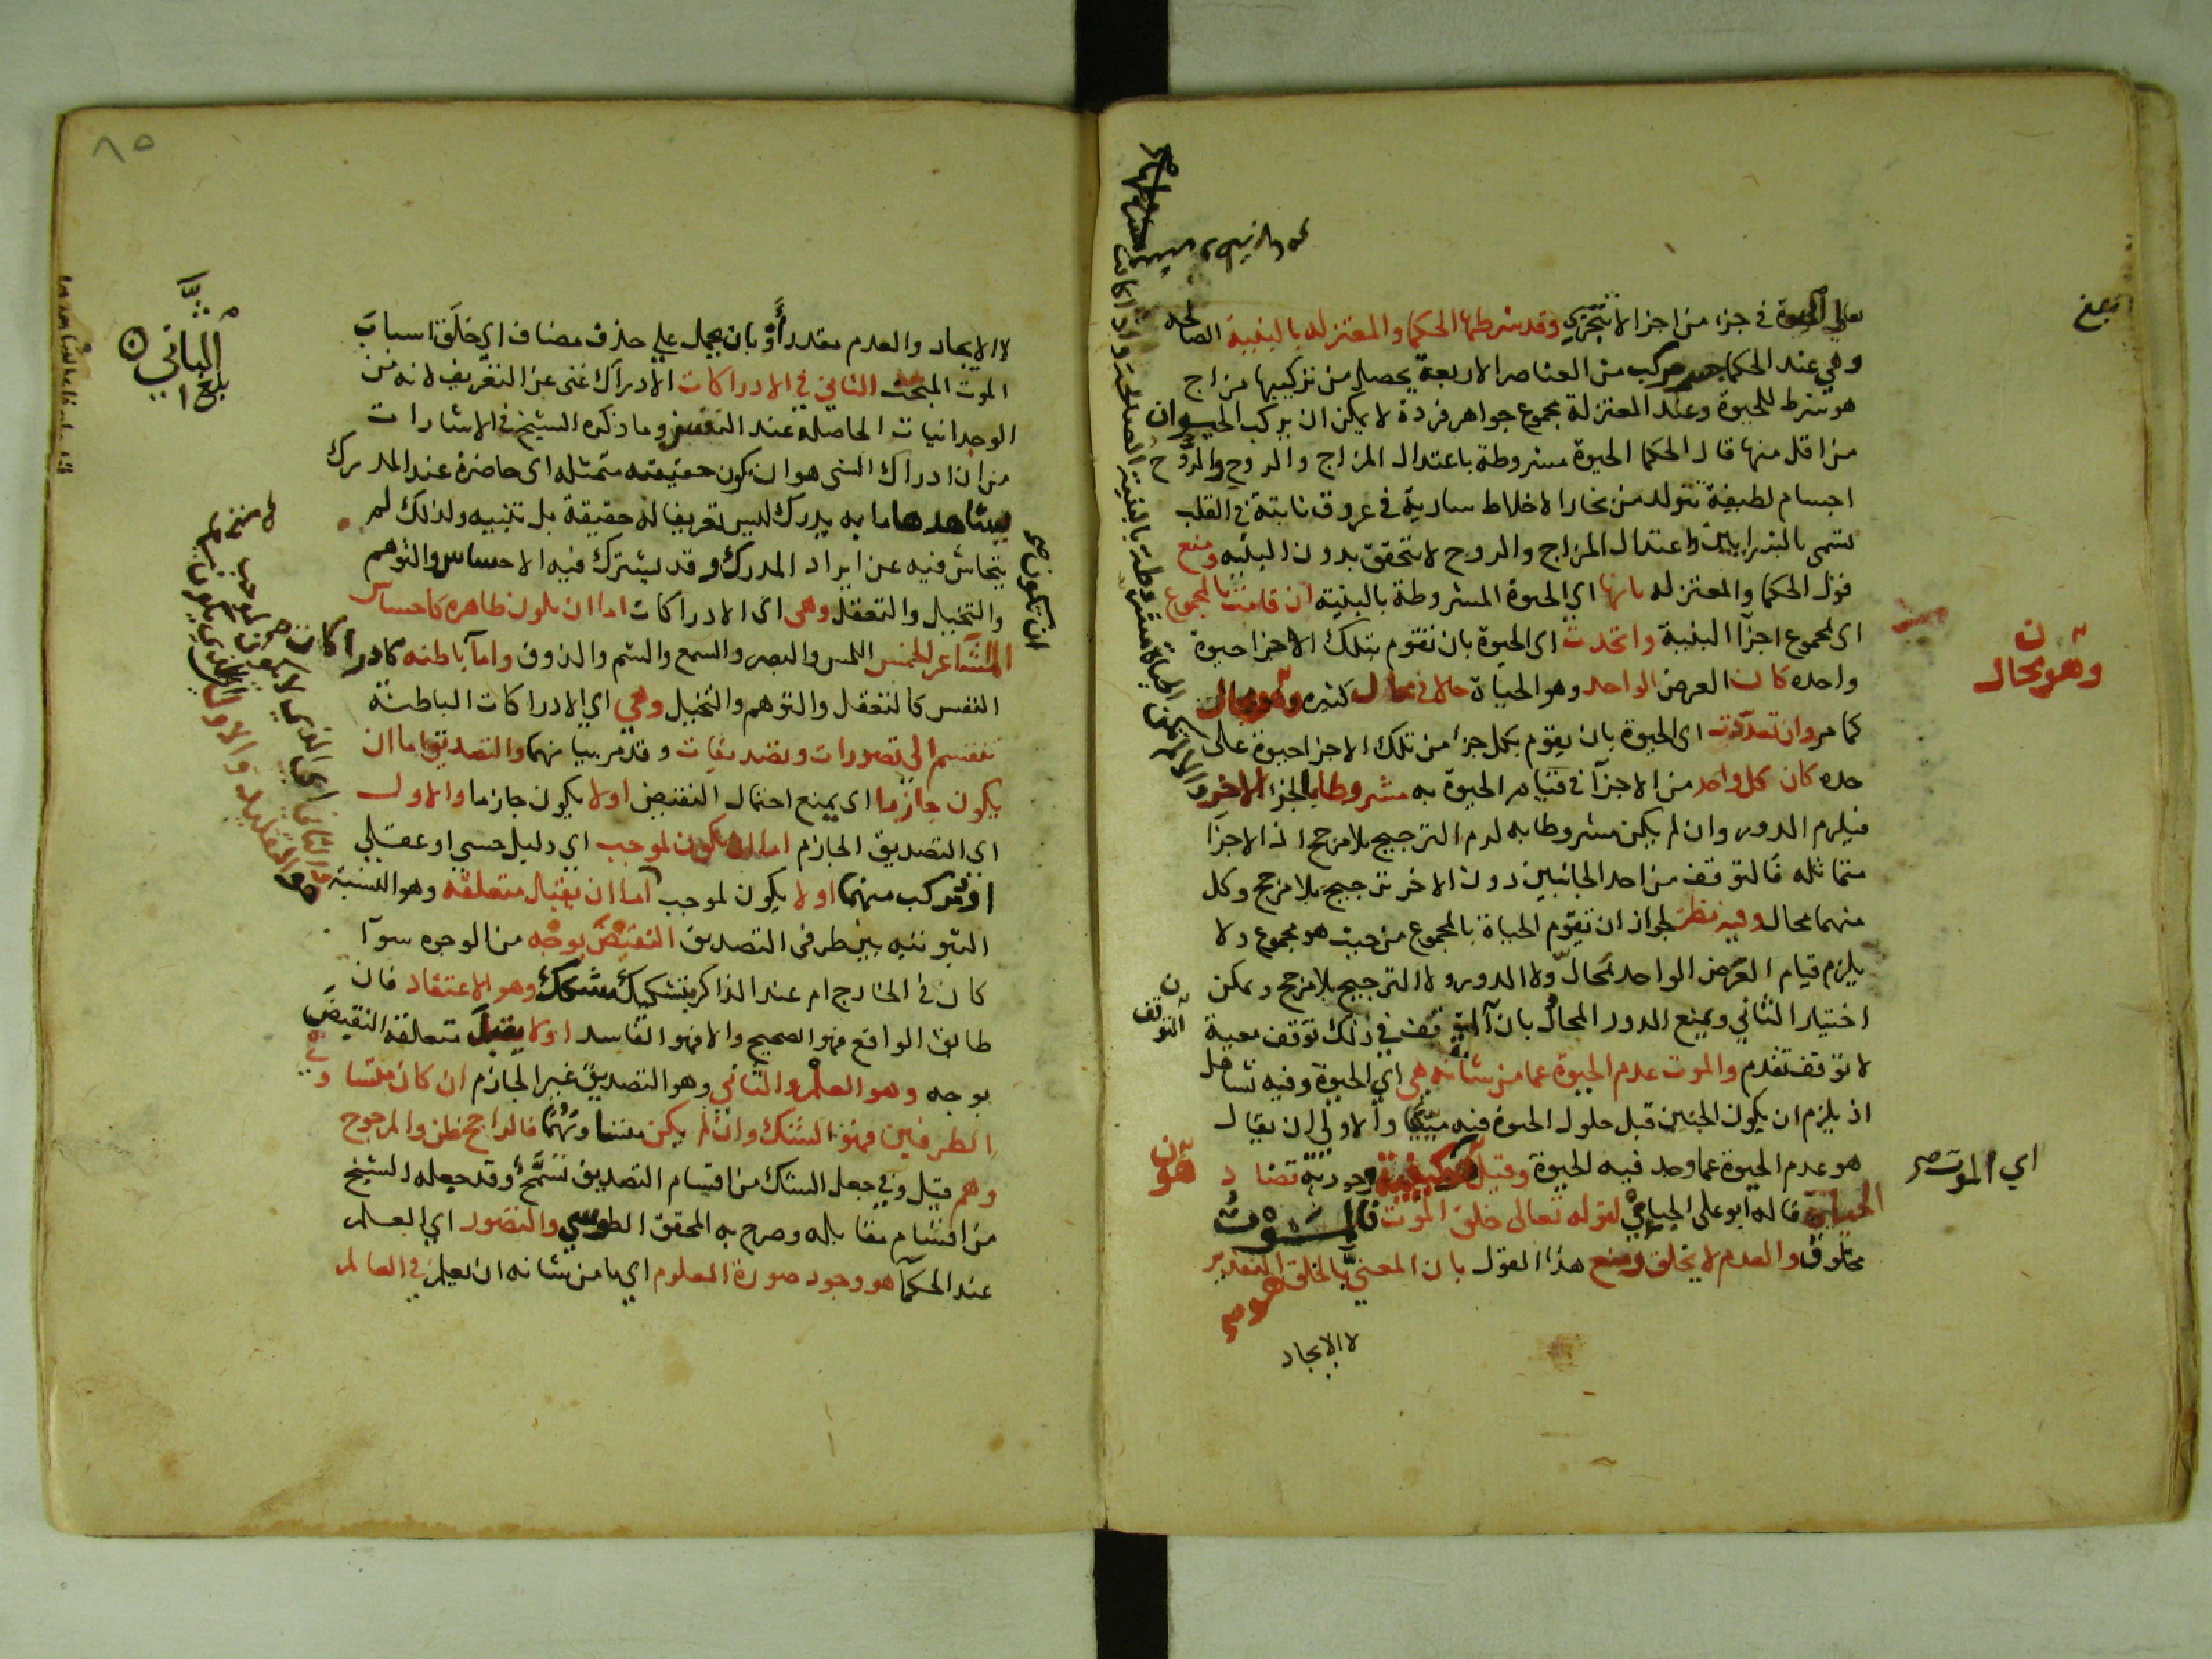 تعالى الحيوة في جزء من اجزا لا تتجزي وقد شرطها الحكما والمعتزله بالبنية الصالحه
وهي عند الحكما جسم مركب من العناصر الاربعة يحصل من تركيبها مزاج
هو شرط للحيوة وعند المعتزلة مجموع جواهر فردة لا يمكن ان يركب الحيوان
من اقل منها قال الحكما الحيوة مشروطة باعتدال المزاج والروح والروح
اجسام لطيفة تتولد من بخار الاخلاط سارية في عروق نابتة في القلب
تسمى بالشرايين واعتدال المزاج والروح لا تتحقق بدون البنيه ومنع
قول الحكما والمعتزله بانها اي الحيوة المشروطة بالبنية ان قامت بالمجموع
اي لمجموع اجزآ البنية واتحدت اى الحيوة بان تقوم بتلك الاجزا حيوة
واحده كان العرض الواحد وهو الحياة حالا في محال كثيره وهو محال
كما مر وان تعددت اى الحيوة بان يقوم بكل جزء من تلك الاجزا حيوة على
حده كان كل واحد من الاجزآ في قيام الحيوة به مشروطا بالجزء الاخر
فيلزم الدور وان لم يكن مشروطا به لزم الترجيح بلا مرجح اذ الاجزآ
متماثله فالتوقف من احد الجانبين دون الاخر ترجيح بلا مرجح وكل
منهما محال وفيه نظر لجواز ان تقوم الحياة بالمجموع من حيث هو مجموع ولا
يلزم قيام العرض الواحد لمحال ولا الدور ولا الترجيح بلا مرجح ويمكن
اختيار الثاني ويمنع الدور المحال بان التوقف في ذلك توقف معية
لا توقف تقدم والموت عدم الحيوة عما من شانه هي اي الحيوة وفيه تساهل
اذ يلزم ان يكون الجنين قبل حلول الحيوة فيه ميتا والاولى ان يقال
هو عدم الحيوة عما وجد فيه الحيوة وقيل كيفية وجودية تضاد
الحياة قاله ابو على الجباءي لقوله تعالى خلق الموت فالموت
مخلوق والعدم لا يخلق ومنع هذا القول بان المعني بالخلق التقدير
لا الايجاد
وهو محال
التوقف
اي الموت صح
لا الايجاد والعدم مقدر أو بان يحمل على حذف مضاف اي خلق اسباب
الموت المبحث الثاني في الادراكات الادراك غنى عن التعريف لانه من
الوجدانيات الحاصلة عند النفس وما ذكره الشيخ في الاشارات
من ان ادراك الشى هو ان يكون حقيقته متمثله اى حاضرة عند المدرك
يشاهدها ما به يدرك ليس تعريفا له حقيقة بل تنبيه ولذلك لم
يتحاش فيه عن ايراد المدرك وقد يشترك فيه الاحساس والتوهم
والتخيل والتعقل وهى اى الادراكات اما ان يكون ظاهره كاحساس
المشاعر الخمس اللمس والبصر والسمع والشم والذوق واما باطنه كادراكات
النفس كالتعقل والتوهم والتخيل وهي اي الادراكات الباطنة
تنقسم الى تصورات وتصديقات وقد مر بيانهما والتصديق اما ان
يكون جازما اى يمنع احتمال النقيض او لا يكون جازما والاول
اي التصديق الجازم اما ان يكون لموجب اي دليل حسي او عقلي
او مركب منهما او لا يكون لموجب اما ان يقبل متعلقه وهو النسبة
الثبوتيه بين طرفى التصديق النقيض بوجه من الوجوه سوآ
كان في الخارج ام عند الذاكر بتشكيك مشكك وهو الاعتقاد فان
طابق الواقع فهو الصحيح والا فهو الفاسد او لا يقبل متعلقه النقيض
بوجه وهو العلم والثاني وهو التصديق غير الجازم ان كان متساوي
الطرفين فهو الشك وان لم يكن متساويهما فالراجح ظن والمرجوح
وهم قيل وفي جعل الشك من اقسام التصديق تسمح وقد جعله الشيخ
من اقسام مقابله وصرح به المحقق الطوسي والتصور اي العلم
عند الحكما هو وجود صورة المعلوم اي ما من شانه ان يعلم في العالم
ان تكون صح
بلغ
٨٥